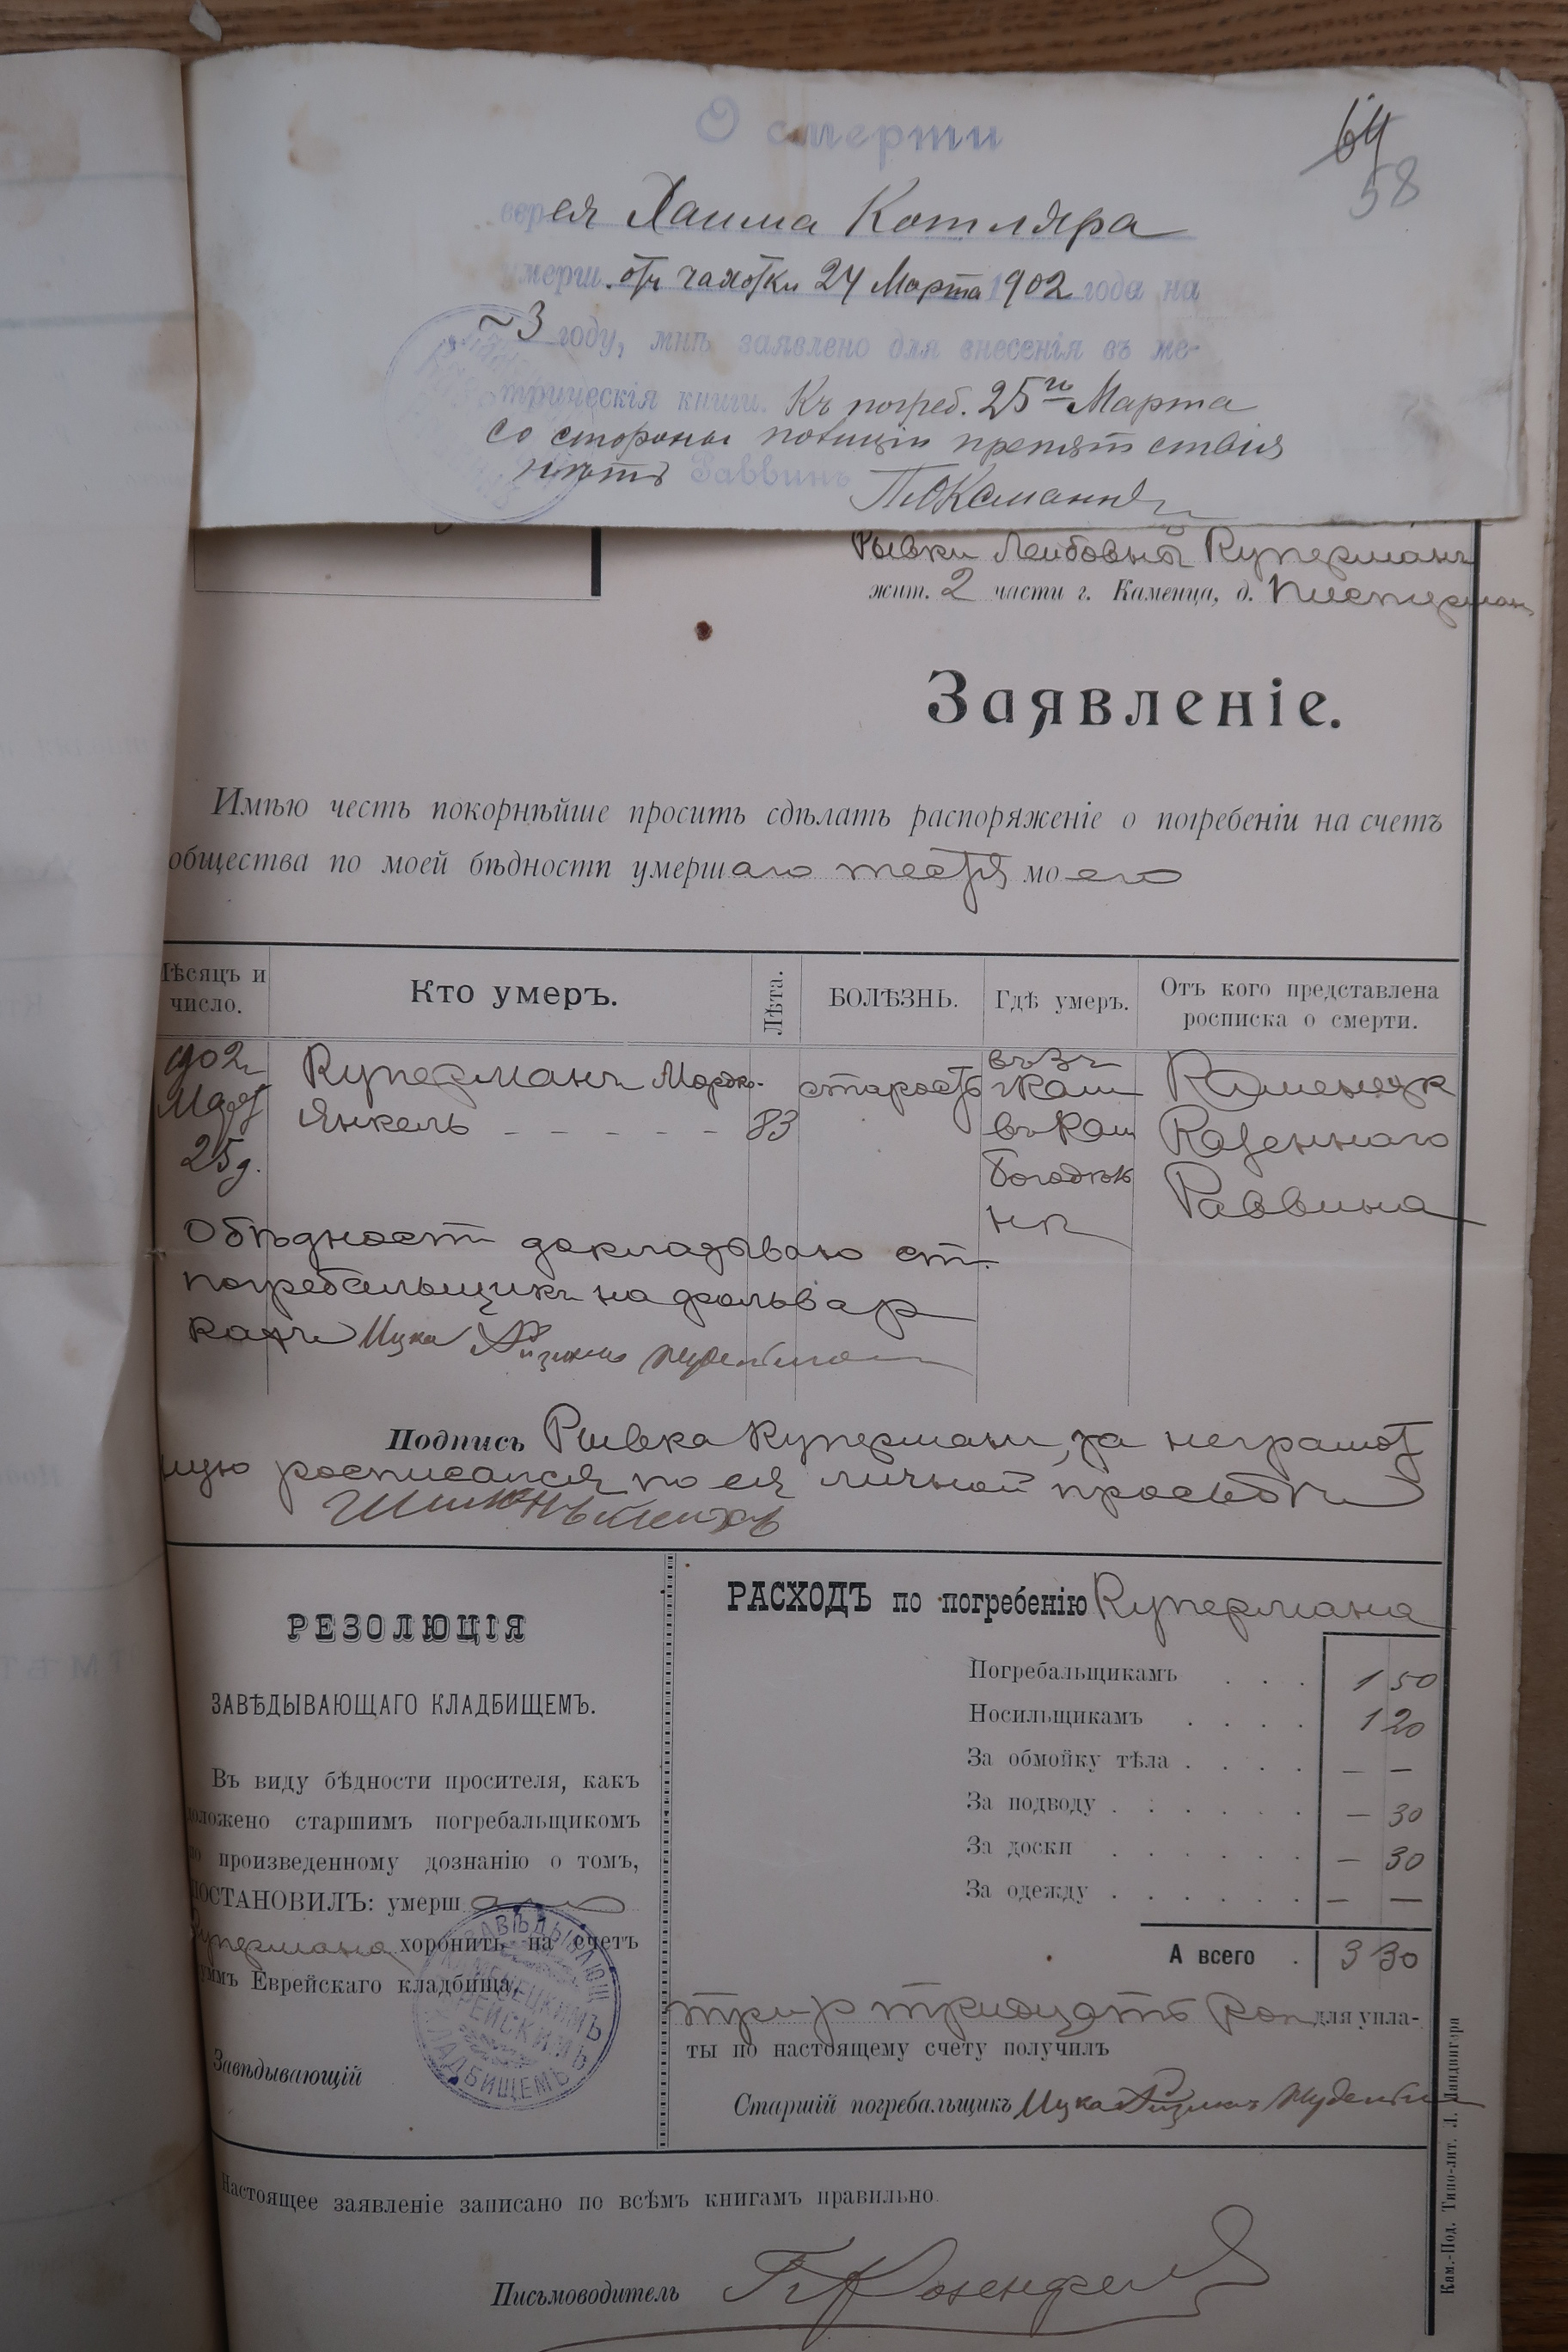 О смерти
64
58
еврея Хаима Котляра
умерш. отъ чахотки 24 Марта 1902 года на
3 году, мнѣ заявлено для внесенія въ ме-
трическія книги. Къ погреб. 25го Марта
со стороны полиціи препятствія
нѣтъ Раввинъ
Рывки Лейбовны Куперманъ
жит. 2 части г. Каменца, д.
Заявленіе.
Имѣю честь покорнѣйше просить сдѣлать распоряженіе о погребеніи на счетъ
общества по моей бѣдности умершаго тестя моего
Мѣсяцъ и число.
Кто умеръ.
Лѣта.
БОЛѢЗНЬ.
Гдѣ умеръ.
Отъ кого представлена росписка о смерти.
902г Март 25д.
Куперманъ Мордко-
Янкель - - - - - -
83
старость
въ Кам
богадѣль
нѣ
Каменецк
Казеннаго
Раввина
О бѣдности докладываю ст.
погребальщикъ на фольвар
кахъ Ицка
Подпись Рывка Куперманъ, за неграмот
ную росписался по ея личной просьбѣ
РЕЗОЛЮЦІЯ
ЗАВѢДЫВАЮЩАГО КЛАДБИЩЕМЪ.
Въ виду бѣдности просителя, какъ
доложено старшимъ погребальщикомъ
по произведенному дознанію о томъ,
ПОСТАНОВИЛЪ: умершаго
Купермана хоронить на счетъ
суммъ Еврейскаго кладбища.
Завѣдывающій
ЗАВѢДЫВАЮЩ. КАМЕНЕЦКИМЪ ЕВРЕЙСКИМЪ КЛАДБИЩЕМЪ
РАСХОДЪ по погребенію Купермана
Погребальщикамъ . . . 1 50
Носильщикамъ . . . . 1 20
За обмойку тѣла . . . . — —
За подводу . . . . . . — 30
За доски . . . . . — 30
За одежду . . . . . . — —
А всего . 3 30
три р тридцать коп для упла-
ты по настоящему счету получилъ
Старшій погребальщикъ Ицка
Настоящее заявленіе записано по всѣмъ книгамъ правильно.
Письмоводитель Розенфельд
Кам.-Под. Типо-лит. Л. Ландвигера